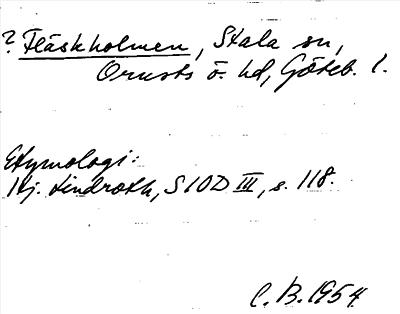 ? Fläskholmen, Stala sn,
Orusts ö. hd, Göteb. l.
Etymologi:
Hj. Lindroth, SIOD III, s. 118.
C. B. 1954